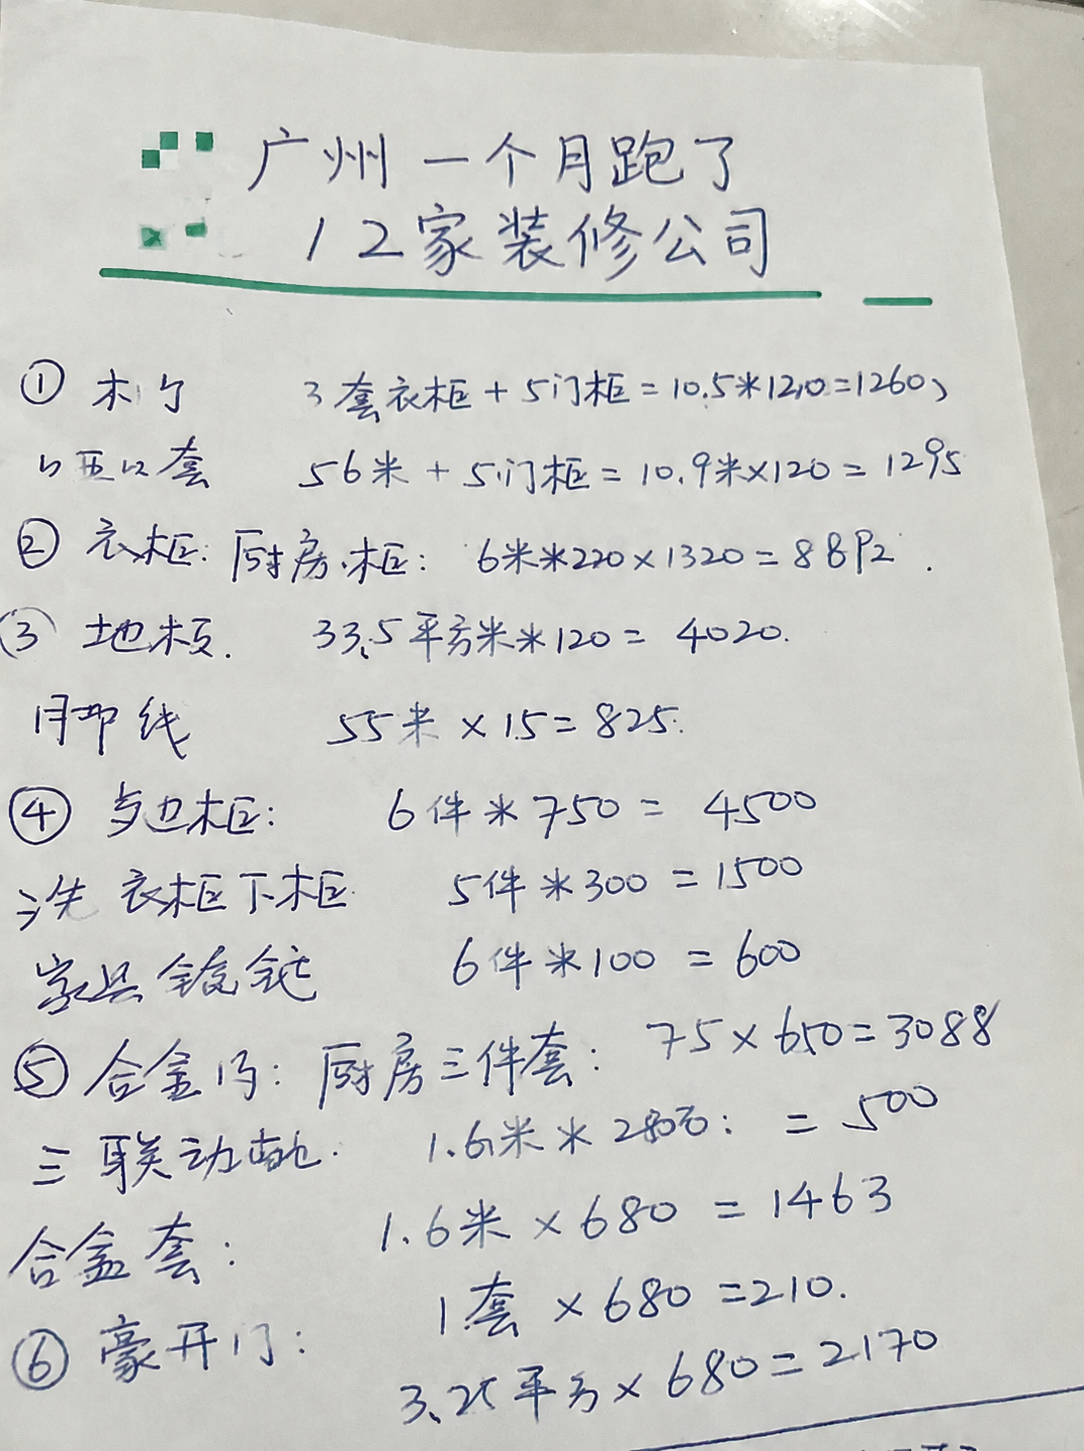 广州一个月跑了
12家装修公司
① 木 3套衣柜+5门柜=10.5米*120=1260、
套 56米+5门柜=10.9米×120=1295
② 衣柜:厨房柜: 6米*220×1320=8892.
③ 地板. 33.5平方米*120=4020.
线 55米×15=825.
④ 边柜: 6件*750=4500
洗衣柜下柜 5件*300=1500
家具 6件*100=600
⑤ 合金门:厨房三件套: 75×650=3088
三联动 1.6米* =500
合金套: 1.6米×680=1463
1套×680=210.
⑥ 豪开门:
3.25平方×680=2170